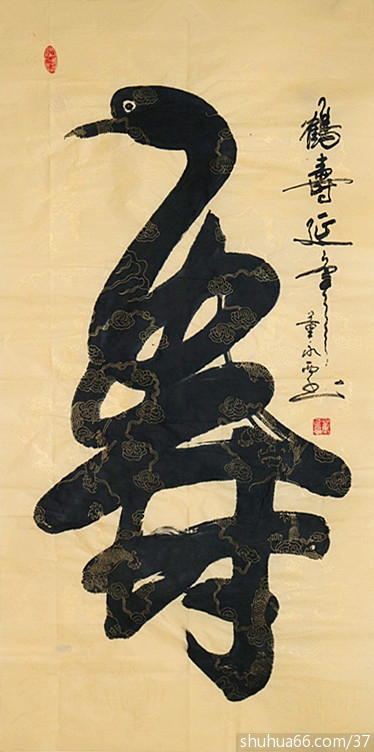 壽
鶴壽延年
董永西书
shuhua66.com/37